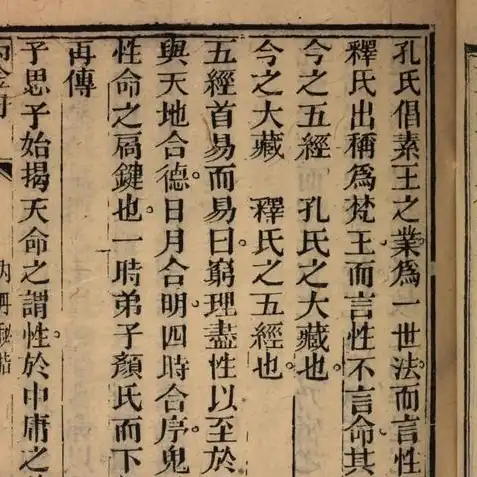 孔氏倡素王之業爲一世法而言性
釋氏出稱爲梵王而言性不言命其
今之五經 孔氏之大藏也
今之大藏 釋氏之五經也
五經首易而易曰窮理盡性以至於
與天地合德日月合明四時合序鬼
性命之扃鍵也一時弟子顏氏而下
再傳
子思子始揭天命之謂性於中庸之
內丹秘